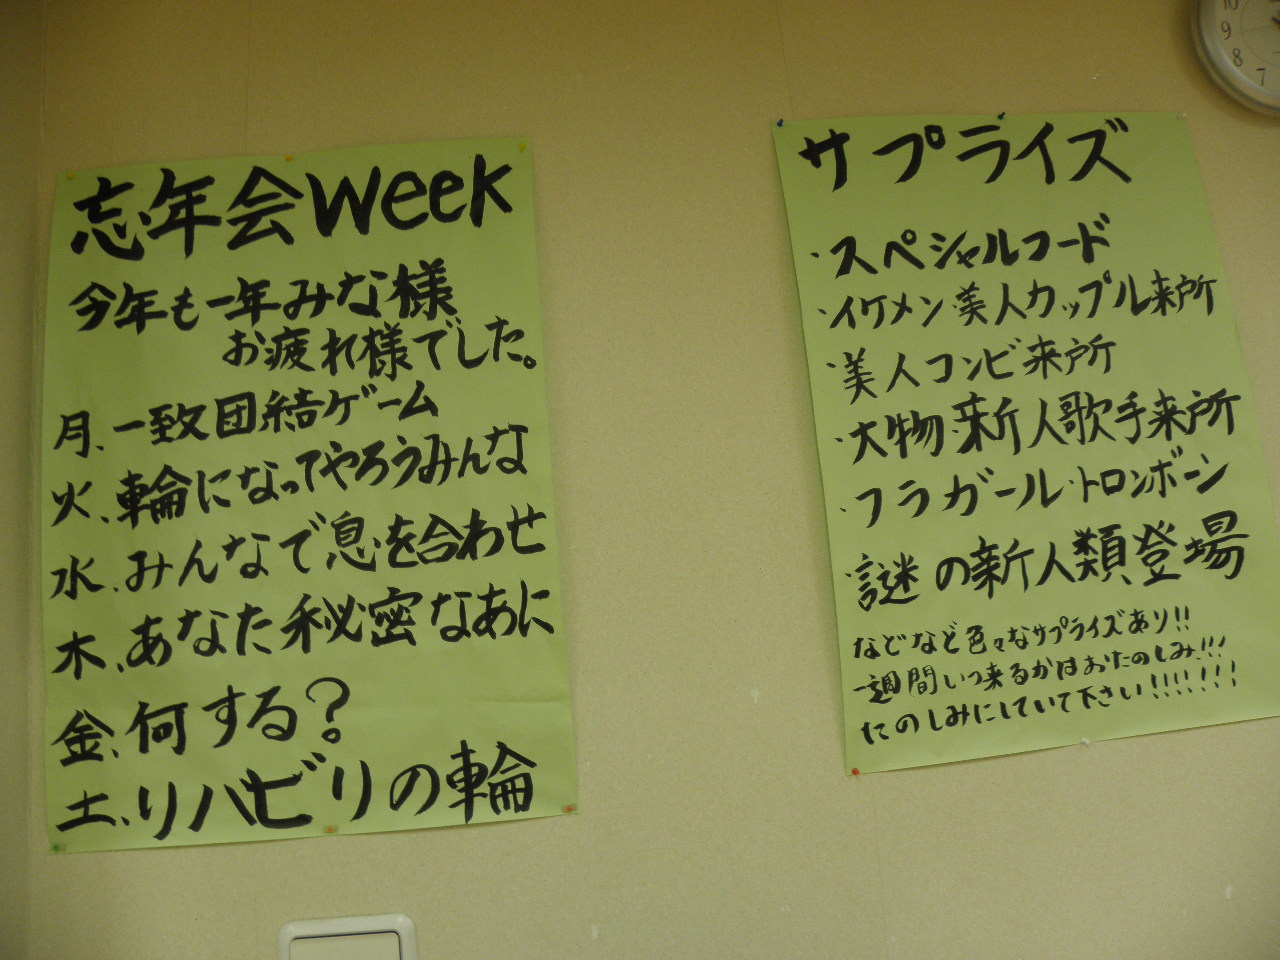 忘年会Week
今年も一年みな様
お疲れ様でした。
月、一致団結ゲーム
火、輪になってやろうみんな
水、みんなで息を合わせ
木、あなた秘密なあに
金、何する?
土、リハビリの輪
サプライズ
・スペシャルフード
・イケメン・美人カップル来所
・美人コンビ来所
・大物新人歌手来所
・フラガール・トロンボーン
・謎の新人類登場
などなど色々なサプライズあり!!
一週間いつ来るかはおたのしみ!!!
たのしみにしていて下さい!!!!!!!
10
9
8
7